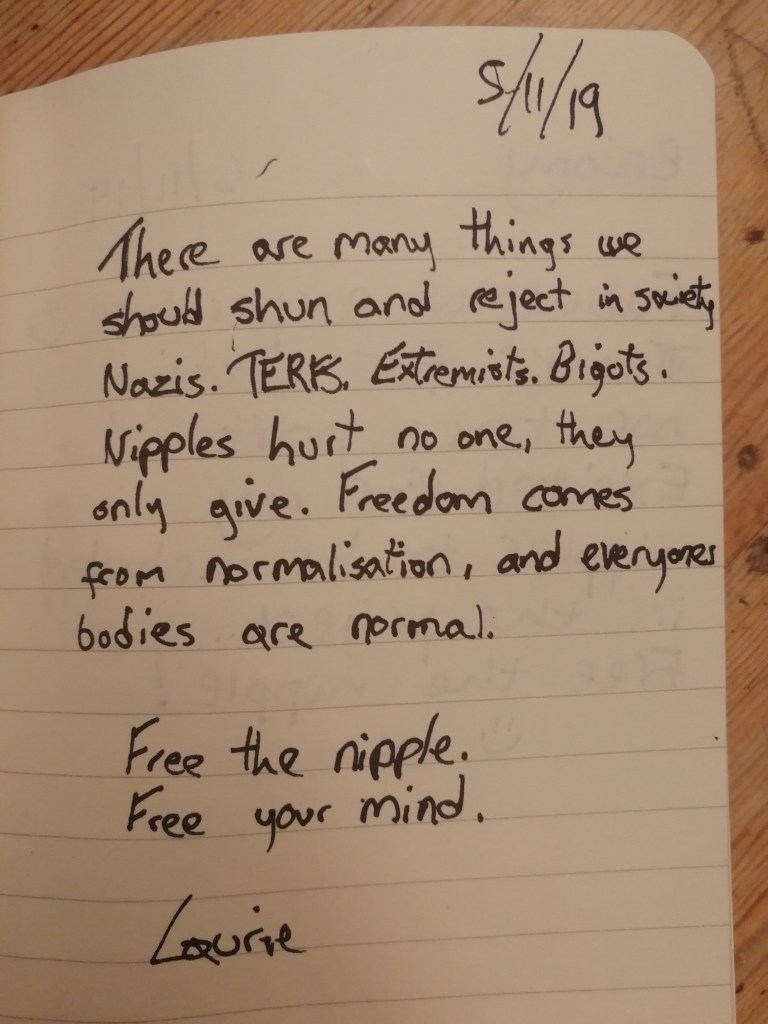 5/11/19
There are many things we
should shun and reject in society
Nazis. TERFS. Extremists. Bigots.
Nipples hurt no one, they
only give. Freedom comes
from normalisation, and everyones
bodies are normal.
Free the nipple.
Free your mind.
Laurie